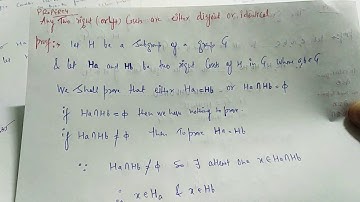 Property
Any two right (or left) Cosets are either disjoint or identical.
Proof:- let H be a Subgroup of a group G
& let Ha and Hb be two right Cosets of H in G, where a,b ∈ G
We shall prove that either Ha=Hb or Ha∩Hb=ϕ
if Ha∩Hb=ϕ then we have nothing to prove
if Ha∩Hb≠ϕ then To prove Ha=Hb
∵ Ha∩Hb≠ϕ So ∃ atleast one x∈Ha∩Hb
∴ x∈Ha & x∈Hb